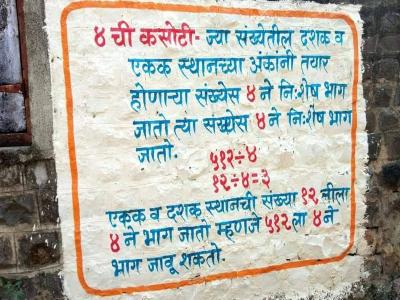 ४ ची कसोटी- ज्या संख्येतील दशक व
एकक स्थानच्या अंकांनी तयार
होणाऱ्या संख्येस ४ ने निःशेष भाग
जातो त्या संख्येस ४ ने निःशेष भाग
जातो.
५१२÷४
१२÷४=३
एकक व दशक स्थानची संख्या १२ लीला
४ ने भाग जातो म्हणजे ५१२ला ४ ने
भाग जावू शकतो.